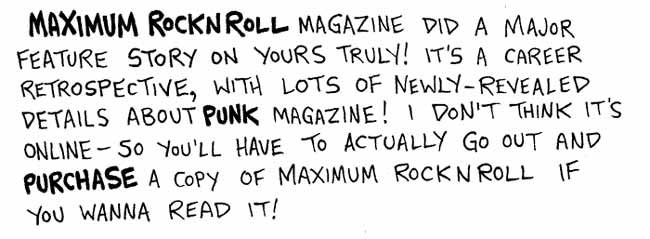 MAXIMUM ROCKNROLL MAGAZINE DID A MAJOR
FEATURE STORY ON YOURS TRULY! IT'S A CAREER
RETROSPECTIVE, WITH LOTS OF NEWLY-REVEALED
DETAILS ABOUT PUNK MAGAZINE! I DON'T THINK IT'S
ONLINE - SO YOU'LL HAVE TO ACTUALLY GO OUT AND
PURCHASE A COPY OF MAXIMUM ROCKNROLL IF
YOU WANNA READ IT!